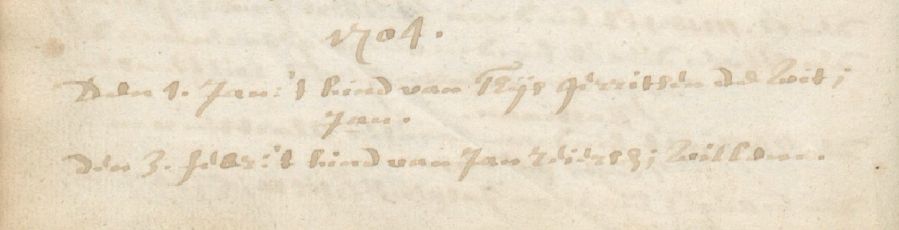 1704.
Den 1. Jan: 't kind van Thijs Gerritsen de Wit;
Jan.
den 3. febr: 't kind van Jan Willem.